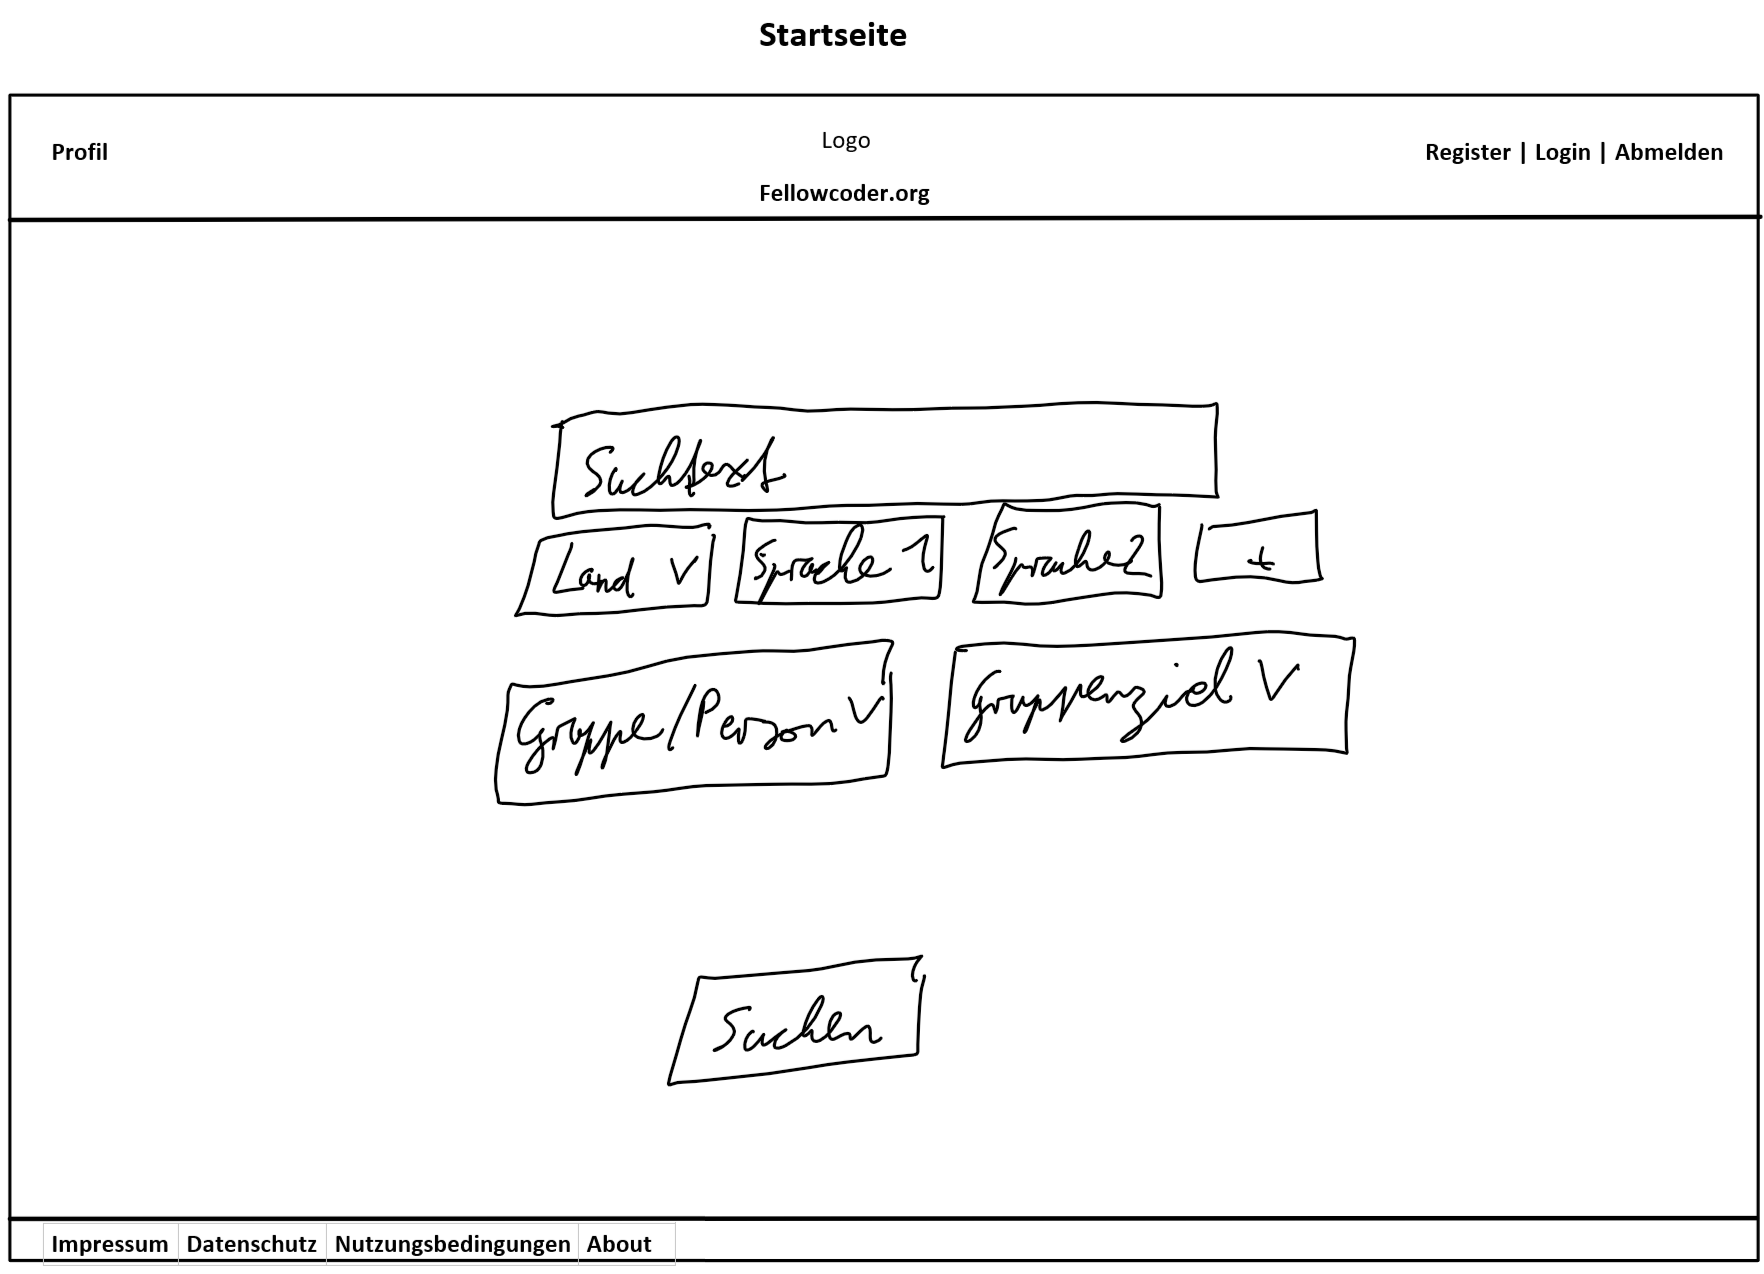 Startseite
Profil
Logo
Register | Login | Abmelden
Fellowcoder.org
Suchtext
Land V Sprache 1 Sprache 2 +
Gruppe/Person V Gruppenziel V
Suchen
Impressum Datenschutz Nutzungsbedingungen About